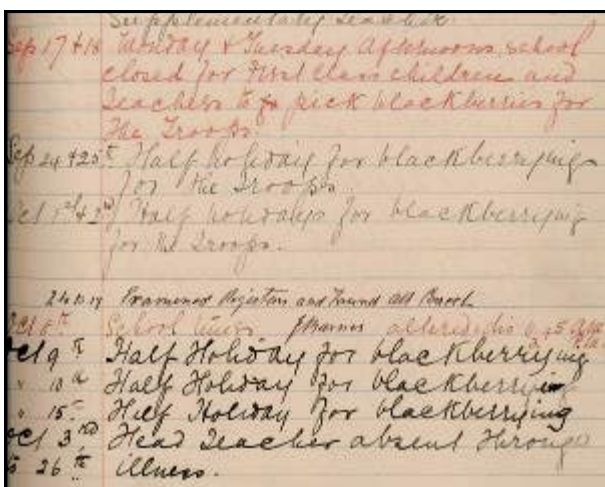 Supplementary Teacher.
Sep 17 & 18 Monday & Tuesday afternoons school
closed for First Class children and
Teachers to pick blackberries for
the Troops.
Sep 24 & 25th Half holiday for blackberrying
for the Troops.
Oct 1st & 2nd Half holidays for blackberrying
for the Troops.
Examined Registers and found all correct
Oct 8th School times altered
Oct 9th Half Holiday for blackberrying
" 10th Half Holiday for blackberrying
" 15 Half Holiday for blackberrying
Oct 3rd Head Teacher absent through
to 26th illness.